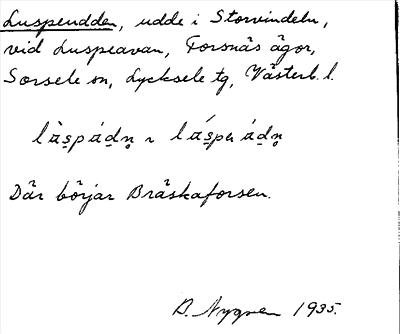 Luspeudden, udde i Storvindeln,
vid Luspeavan, Forsnäs ägor,
Sorsele sn, Lycksele tg, Västerb. l.
Där börjar Bräskaforsen.
D. Nygren 1935.